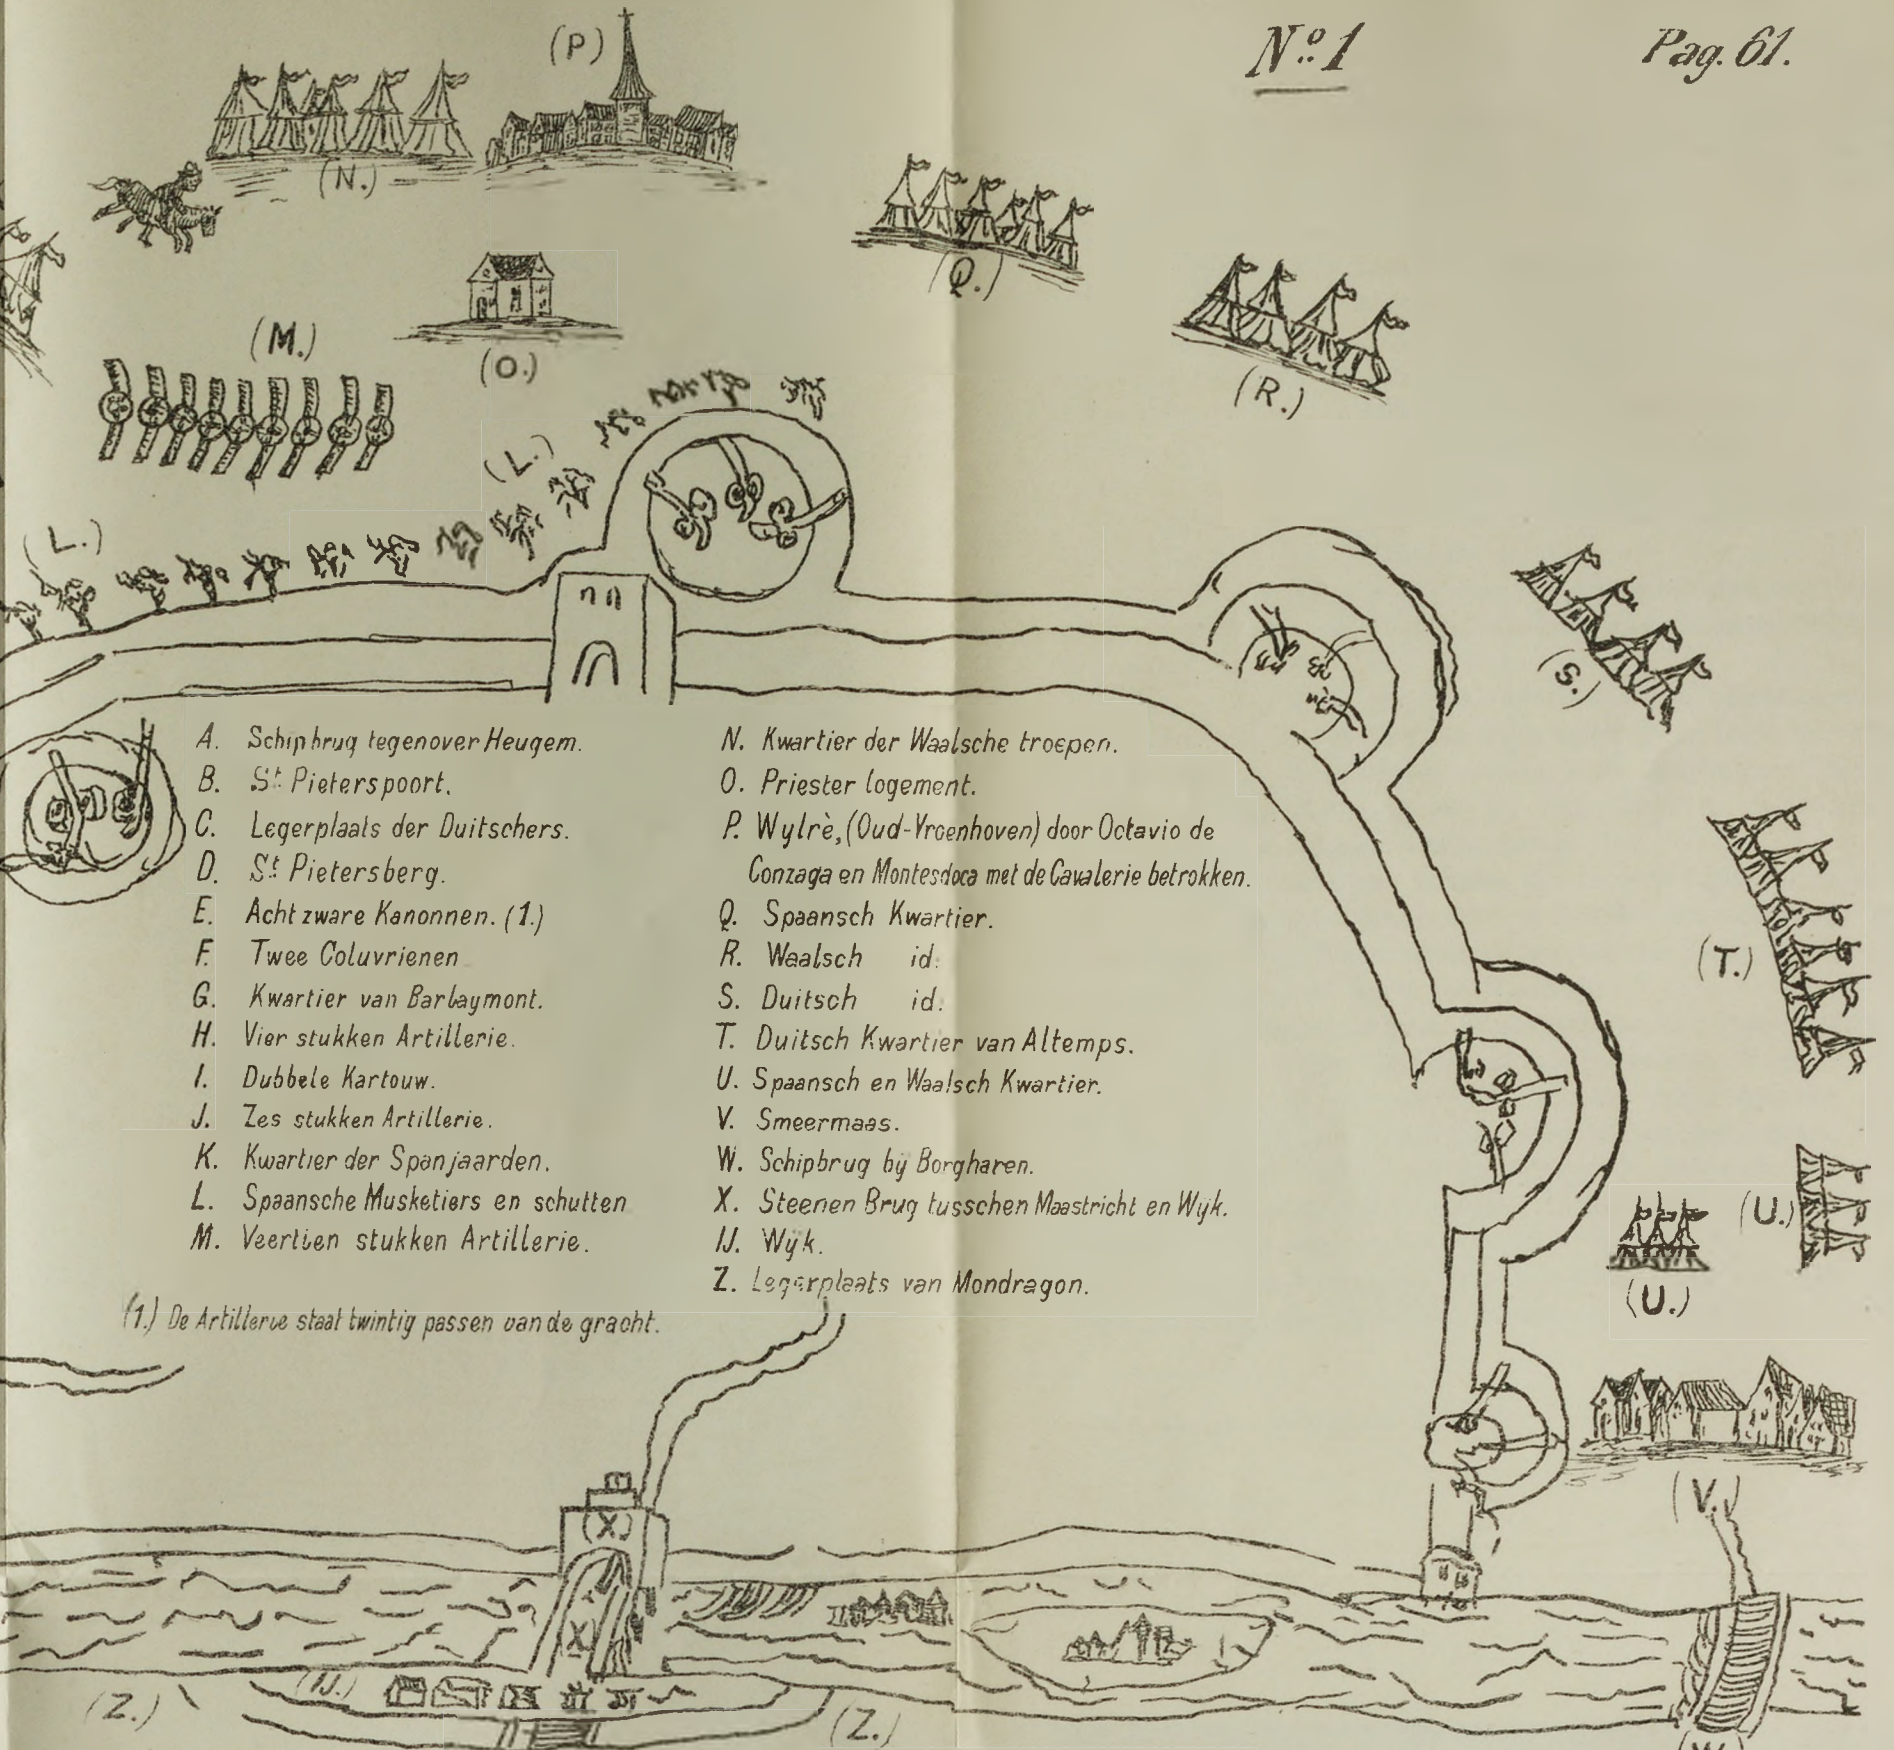 (P)
Nº 1
Pag. 61.
(N.)
(Q.)
(M.)
(O.)
(R.)
(L.)
(L.)
(S.)
A. Schipbrug tegenover Heugem.
B. St. Pieterspoort.
C. Legerplaats der Duitschers.
D. St. Pietersberg.
E. Acht zware Kanonnen. (1.)
F. Twee Coluvrienen
G. Kwartier van Barlaymont.
H. Vier stukken Artillerie.
I. Dubbele Kartouw.
J. Zes stukken Artillerie.
K. Kwartier der Spanjaarden.
L. Spaansche Musketiers en schutten
M. Veertien stukken Artillerie.
(1.) De Artillerie staat twintig passen van de gracht.
N. Kwartier der Waalsche troepen.
O. Priester logement.
P. Wylrè, (Oud-Vroenhoven) door Octavio de
Conzaga en Montesdoca met de Cavalerie betrokken.
Q. Spaansch Kwartier.
R. Waalsch id.
S. Duitsch id.
T. Duitsch Kwartier van Altemps.
U. Spaansch en Waalsch Kwartier.
V. Smeermaas.
W. Schipbrug bij Borgharen.
X. Steenen Brug tusschen Maastricht en Wijk.
IJ. Wijk.
Z. Legerplaats van Mondragon.
(T.)
(U.)
(U.)
(V.)
(X)
X
(IJ.)
(Z.)
(Z.)
(W.)